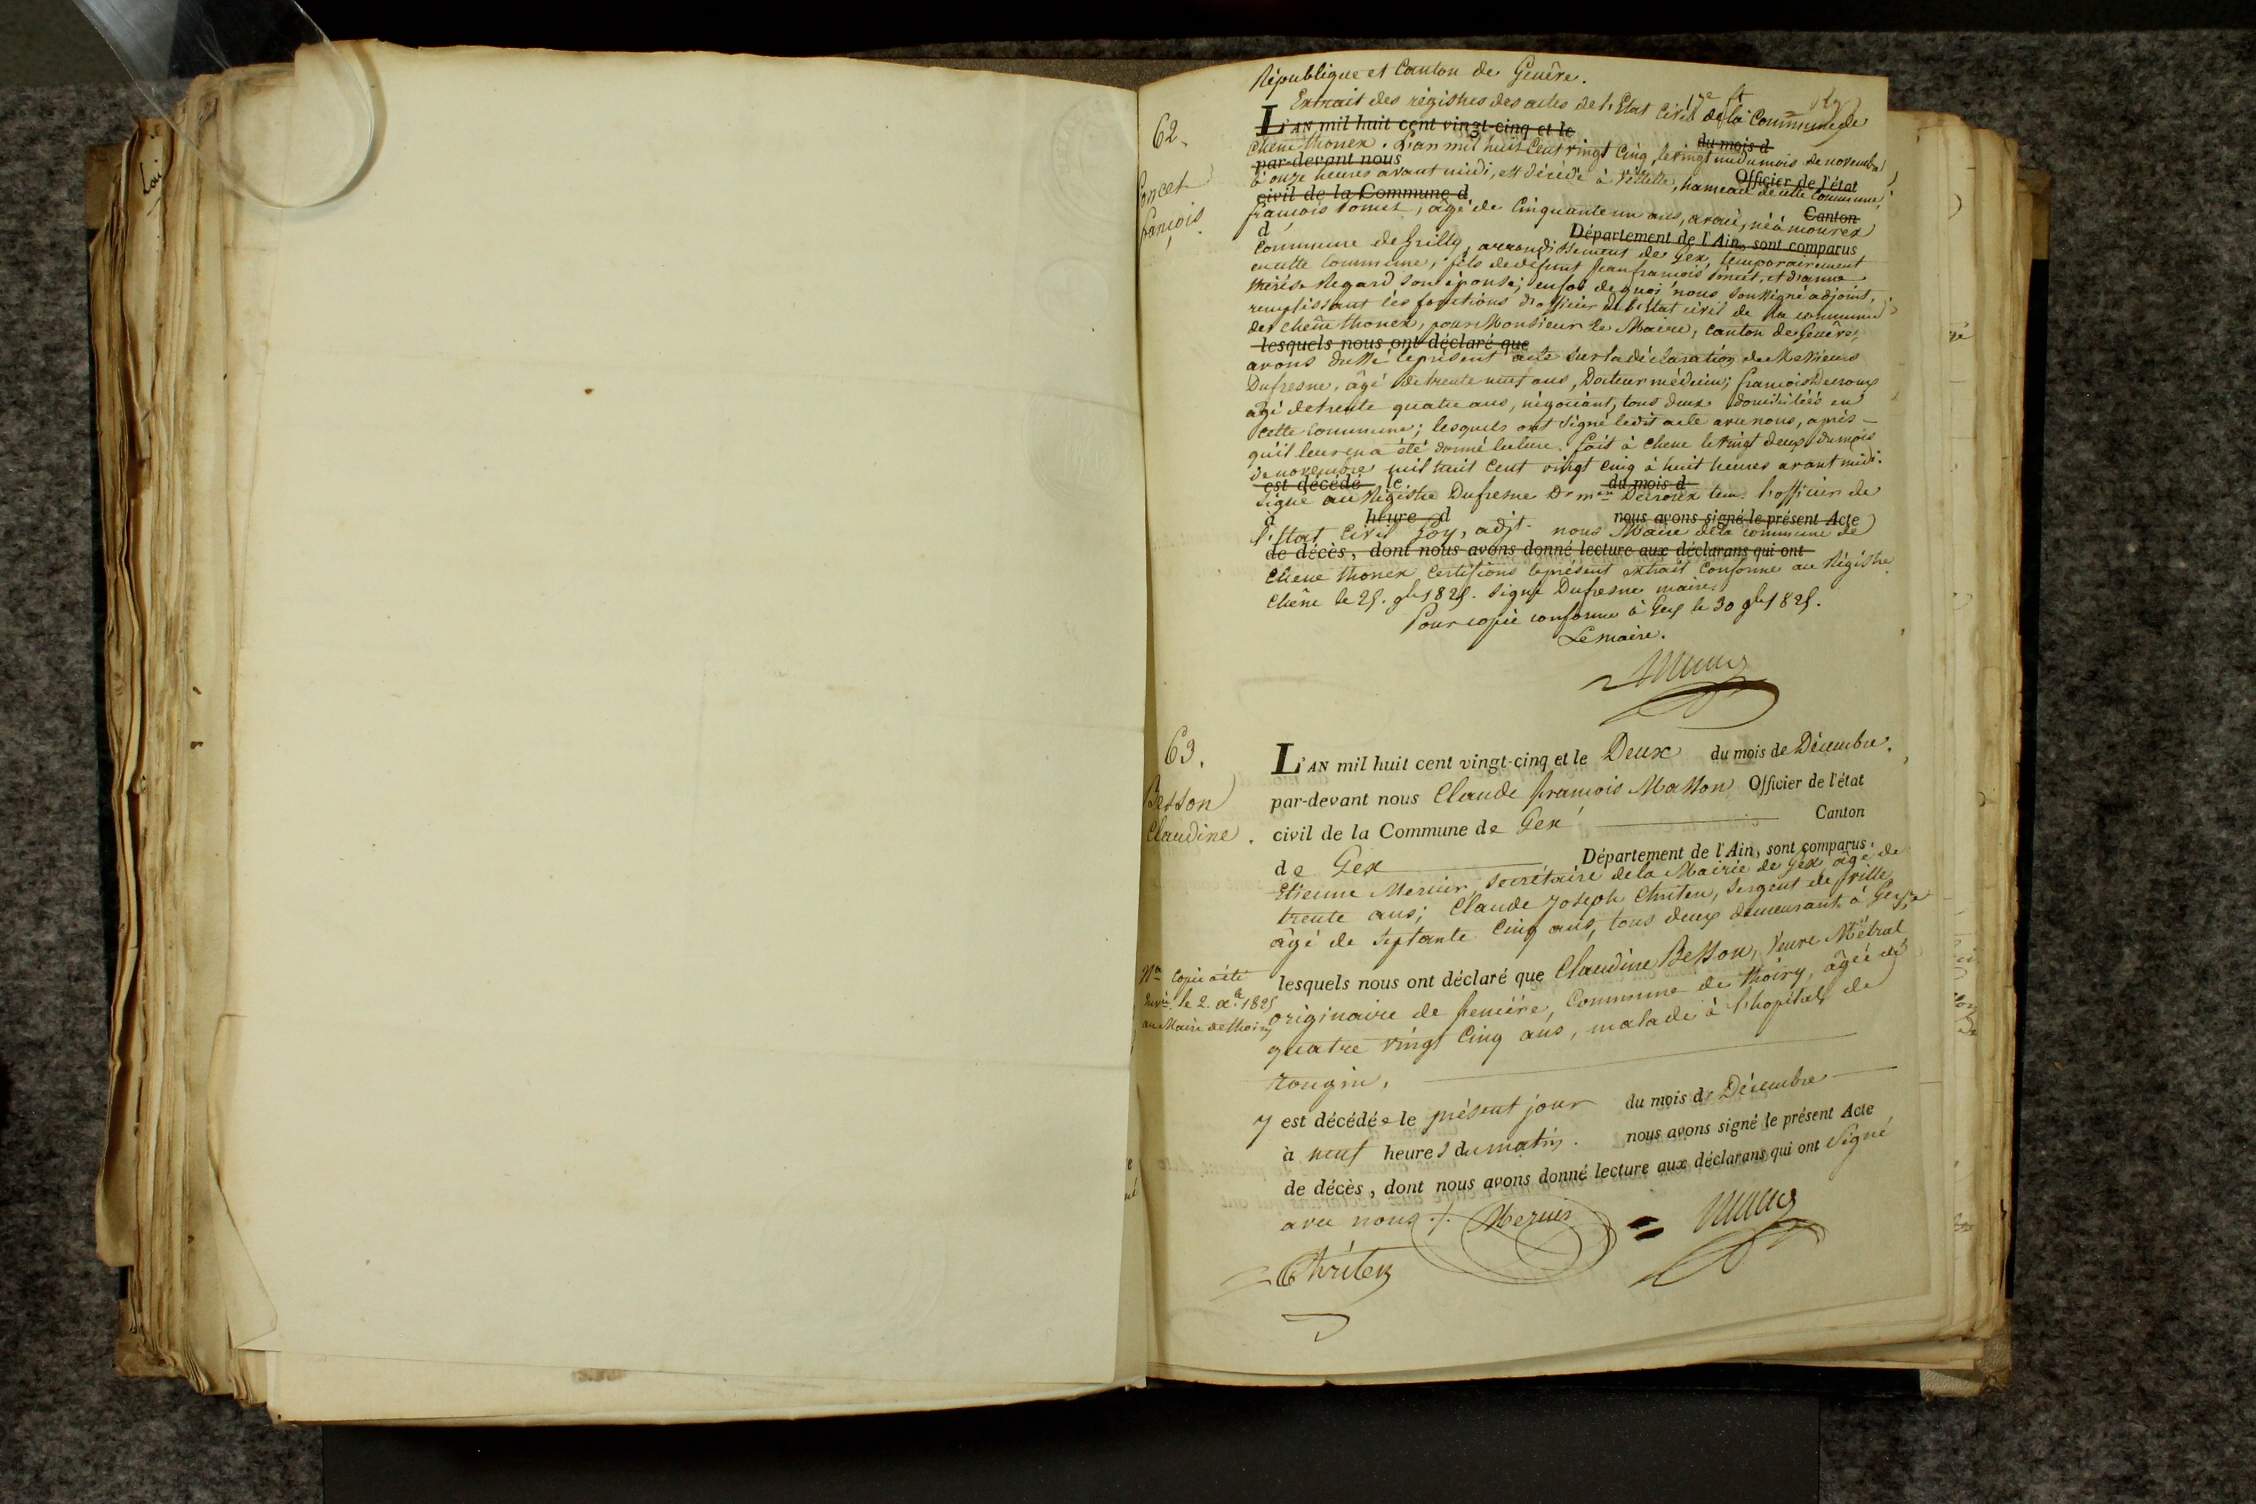 Loi
62.
Poncet
françois.
République et Canton de Genêve.
Extrait des régistres des actes de l'Etat Civil de la Commune de
L'AN mil huit cent vingt-cinq et le
du mois d
chêne thonex. L'an mil huit Cent vingt Cinq, le vingt un du mois de novembre
par-devant nous
Officier de l'état
à onze heures avant midi, est décédé à hameau de cette Commune,
civil de la Commune d
Canton
françois Poncet, âgé de Cinquante un ans, né à mourex
d
Département de l'Ain, sont comparus
Commune de Grilly, arrondissement de Gex, temporairement
en cette Commune, fils de défunt Jean françois Poncet, et d'anne
thérèse Regard son épouse; en foi de quoi nous soussigné adjoint,
remplissant les fonctions d'officier de l'Etat civil de la commune
de chêne thonex, pour Monsieur le Maire, canton de Genêve,
lesquels nous ont déclaré que
avons dressé le présent acte sur la déclaration de Messieurs
Dufresne, âgé de trente neuf ans, Docteur médecin; françois Decroux
agé de trente quatre ans, négociant, tous deux domiciliés en
cette Commune; lesquels ont signé ledit acte avec nous, après
qu'il leur en a été donné lecture. fait à chene le vingt deux du mois
de novembre mil huit cent vingt cinq à huit heures avant midi.
est décédé le
du mois d
Signé au Régistre Dufresne Dr min Decroux l'officier de
à heure d
nous avons signé le présent Acte
l'Etat Civil Foy, adjt. nous Maire de la commune de
de décès, dont nous avons donné lecture aux déclarans qui ont
chene thonex certifions le présent extrait Conforme au Régistre
Chêne le 25. 9bre 1825. Signé Dufresne maire.
Pour copie conforme à Gex le 30 9bre 1825.
Le maire.
63.
Besson
Claudine.
L'AN mil huit cent vingt-cinq et le Deux du mois de Décembre.
par-devant nous Claude françois Masson Officier de l'état
civil de la Commune de Gex Canton
de Gex Département de l'Ain, sont comparus.
Etienne Mercier, secrétaire de la Mairie de Gex, âgé de
trente ans; Claude Joseph Christen, sergent de ville,
âgé de septante cinq ans, tous deux demeurant à Gex,
Na Copie a été
envoi. le 2. Xbre 1825
au Maire de thoiry
lesquels nous ont déclaré que Claudine Besson, veuve Métral
originaire de feniére, Commune de thoiry, âgée de
quatre vingt Cinq ans, malade à l'hopital de
tougin,
y est décédée le présent jour du mois de Décembre
à neuf heures du matin. nous avons signé le présent Acte
de décès, dont nous avons donné lecture aux déclarans qui ont signé
avec nous ./. Mercier
Christen